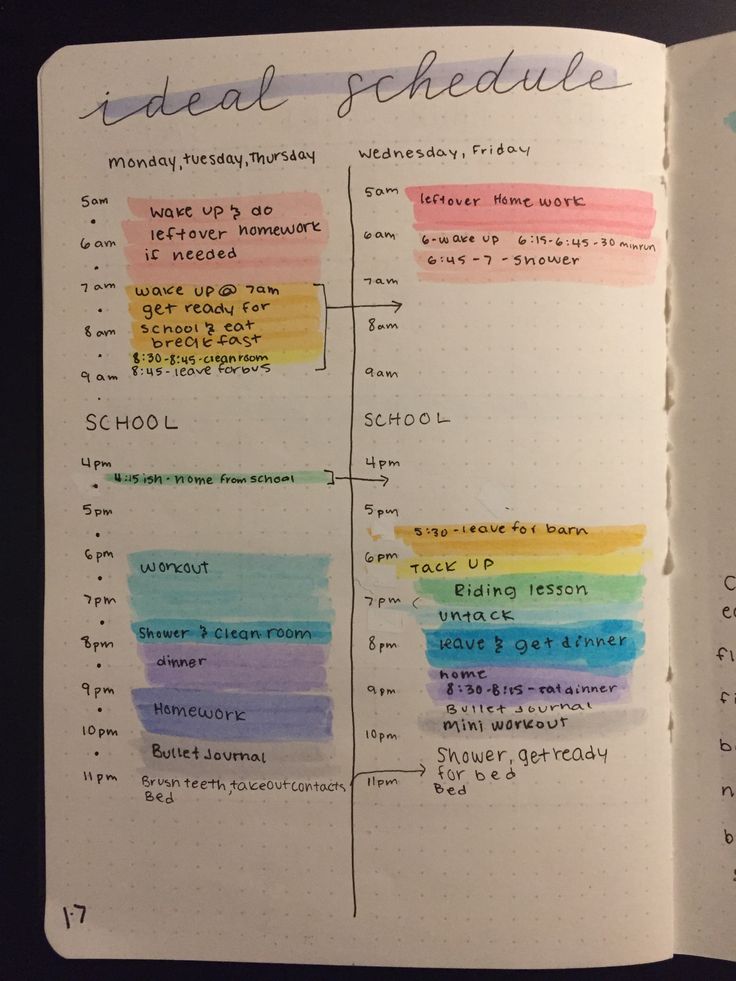 ideal schedule
monday, tuesday, Thursday
5am
wake up & do
leftover homework
6am
if needed
7am
wake up @ 7am
get ready for
8am
school & eat
breakfast
8:30-8:45-clean room
9am
8:45-leave for bus
SCHOOL
4pm
4:15 ish - home from school
5pm
6pm
workout
7pm
Shower & clean room
8pm
dinner
9pm
Homework
10pm
Bullet Journal
11pm
Brush teeth, takeout contacts
Bed
1.7
Wednesday, Friday
5am
leftover Home work
6am
6-wake up 6:15-6:45-30 min run
6:45-7-Shower
7am
8am
9am
SCHOOL
4pm
5pm
5:30-leave for barn
6pm
TACK UP
Riding lesson
7pm
untack
8pm
leave & get dinner
home
9pm
8:30-8:45-eat dinner
Bullet Journal
mini workout
10pm
Shower, get ready
for bed
11pm
Bed